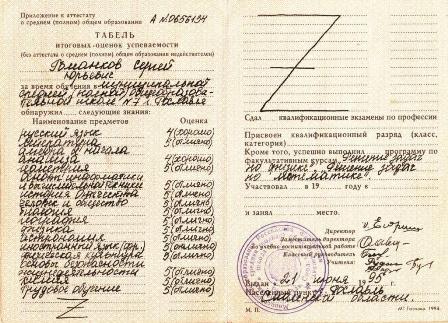 Приложение к аттестату
о среднем (полном) общем образовании
А №0656194
ТАБЕЛЬ
итоговых оценок успеваемости
(без аттестата о среднем (полном) общем образовании недействителен)
Сергей
Юрьевич
за время обучения в муниципальной
средней (полной) общеобразова-
тельной школе №7 г. Рославля
обнаружил следующие знания:
Наименование предметов Оценка
русский язык 4(хорошо)
литература 5(отлично)
алгебра и начала
анализа 4(хорошо)
геометрия 5(отлично)
основы информатики
и вычислительной техники 5(отлично)
история отечества 5(отлично)
человек и общество 5(отлично)
география 5(отлично)
физика 5(отлично)
астрономия 5(отлично)
иностранный язык 5(отлично)
физическая культура 5(отлично)
основы безопасности
жизнедеятельности 5(отлично)
химия 5(отлично)
трудовое обучение 5(отлично)
Z
Z
Сдал квалификационные экзамены по профессии
Присвоен квалификационный разряд (класс,
категория)
Кроме того, успешно выполнил программу по
факультативным курсам Решение задач
по физике. Решение задач
по математике.
Участвовал 19 году в
и занял место.
Директор
Заместитель директора
по учебно-воспитательной работе
Классный руководитель
Учителя
Выдан 21 июня 1995 г.
Населенный пункт г. Рославль
Смоленской области.
М. П.
Гознака 1994.